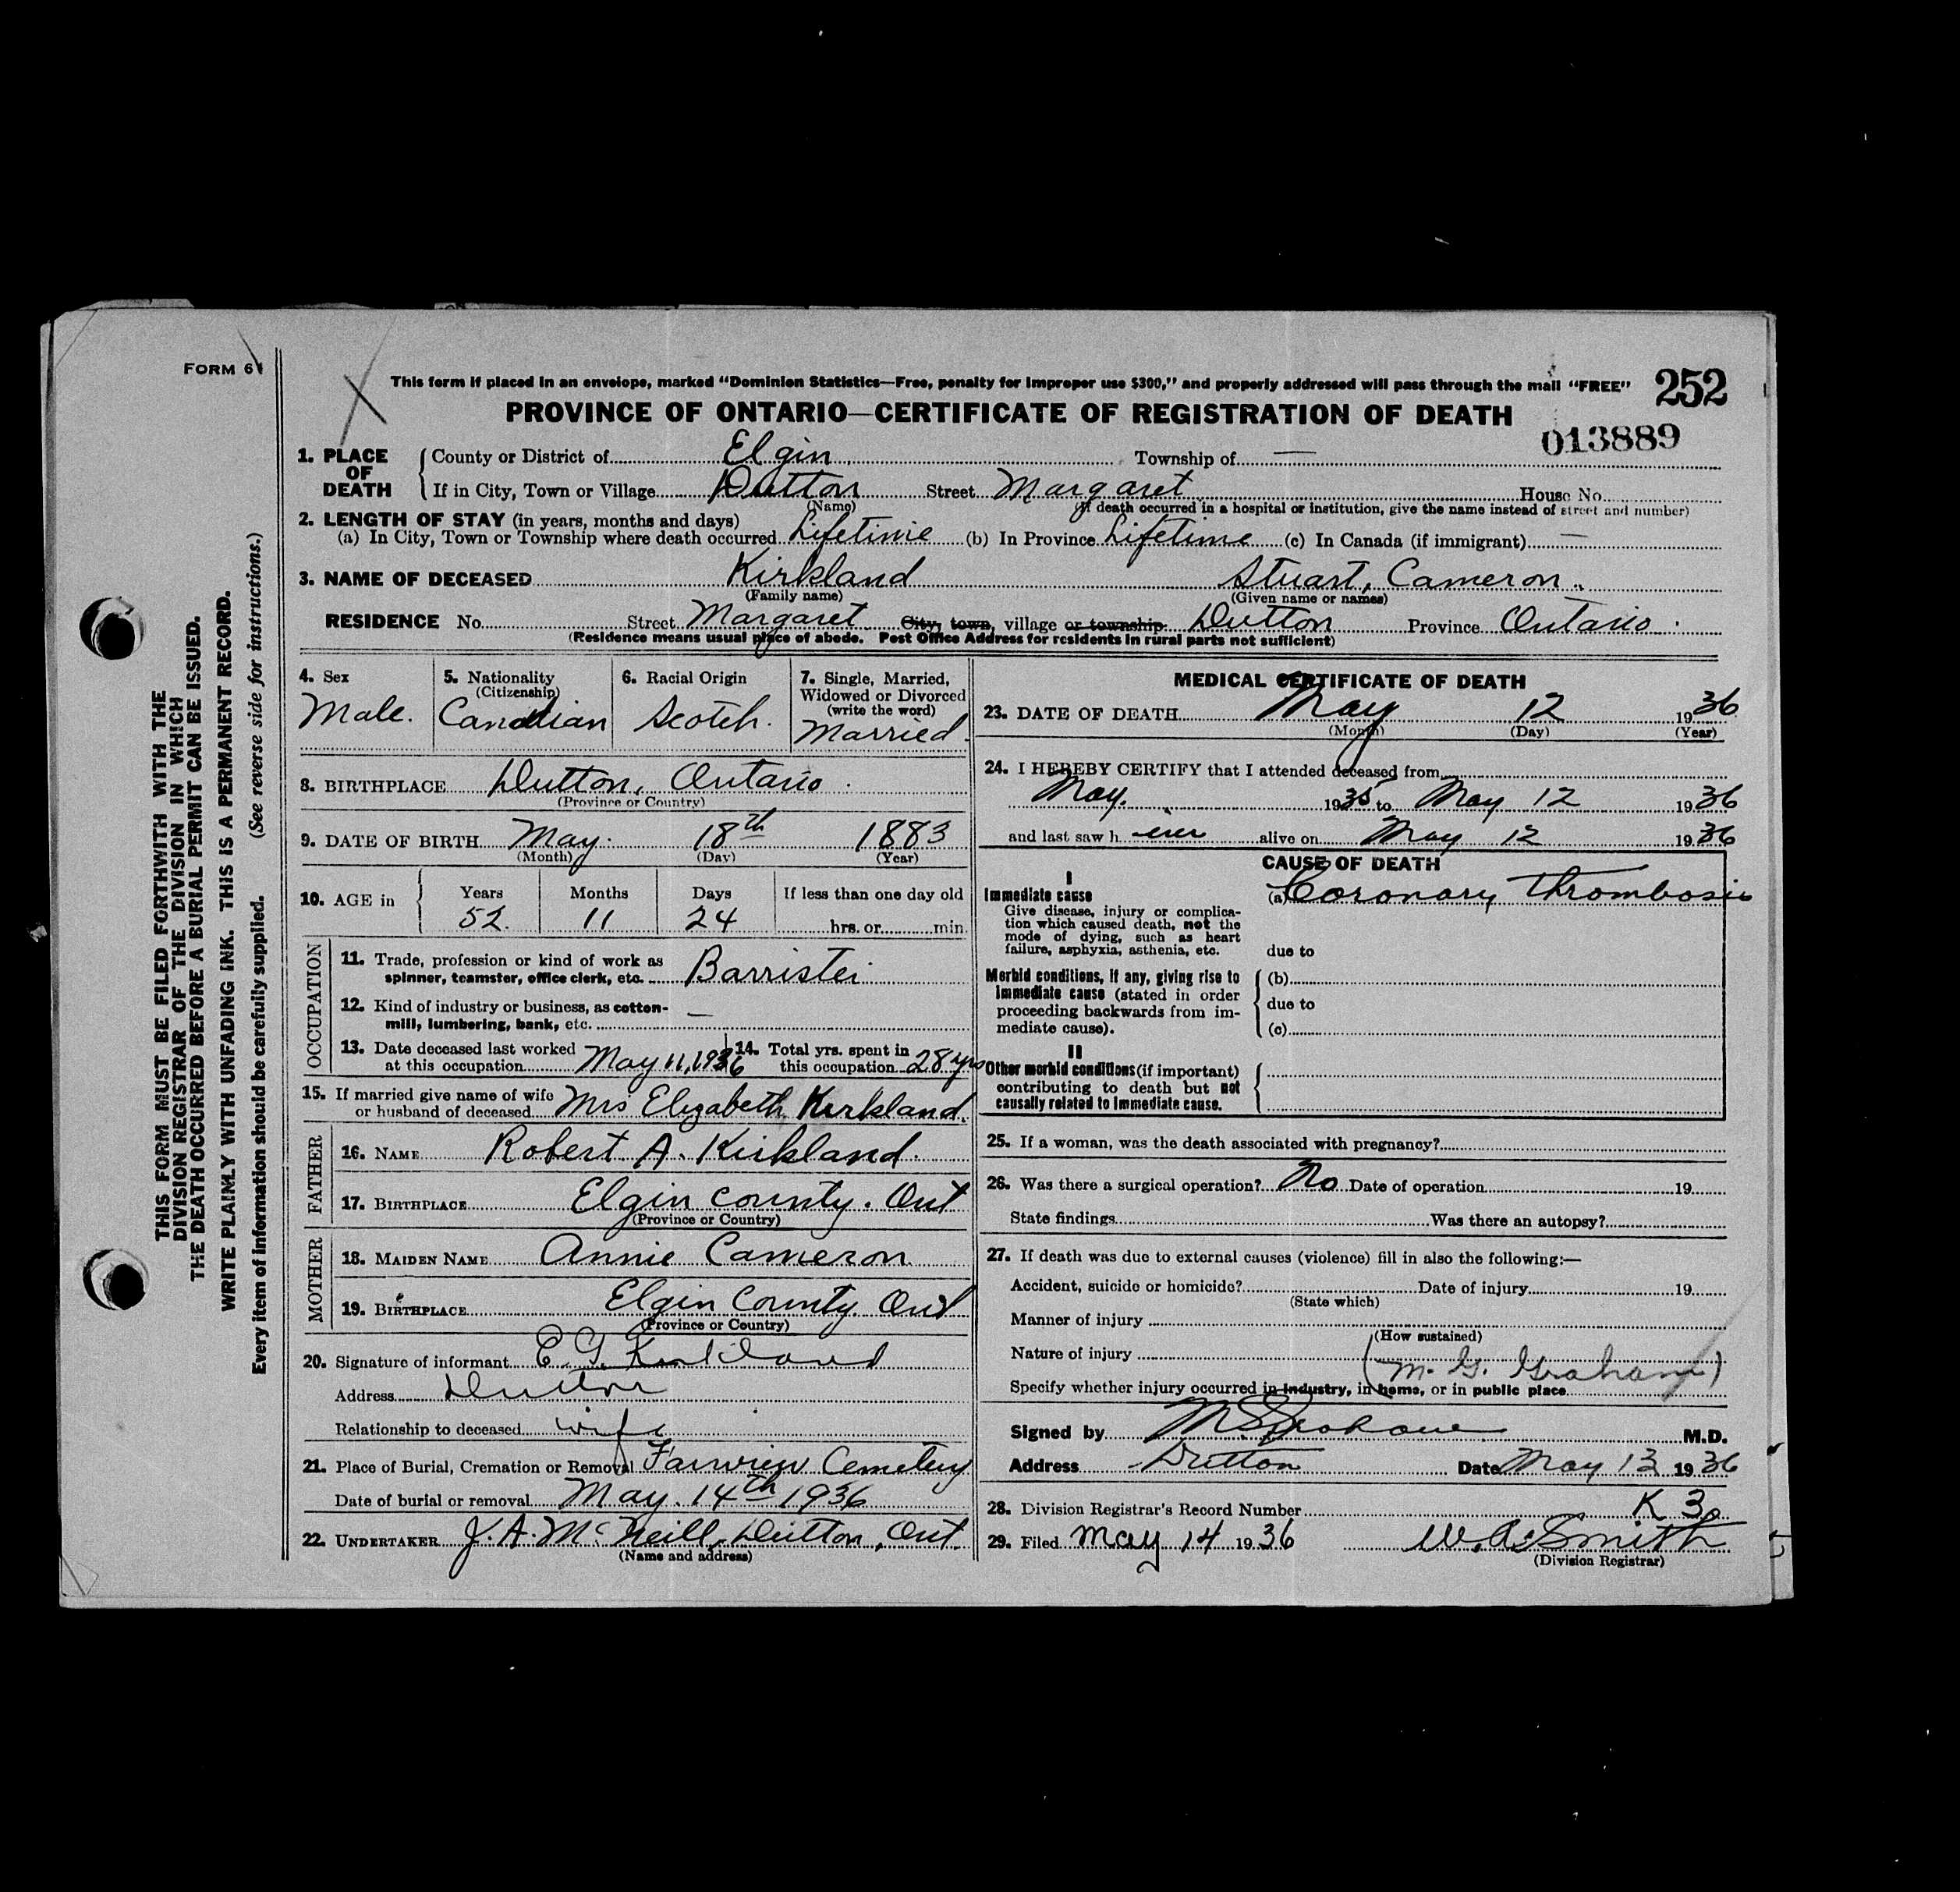 FORM 6
This form if placed in an envelope, marked "Dominion Statistics—Free, penalty for improper use $300," and properly addressed will pass through the mail "FREE"
252
PROVINCE OF ONTARIO—CERTIFICATE OF REGISTRATION OF DEATH
013889
1. PLACE OF DEATH
County or District of Elgin Township of —
If in City, Town or Village Dutton Street Margaret House No.
(Name) (If death occurred in a hospital or institution, give the name instead of street and number)
2. LENGTH OF STAY (in years, months and days)
(a) In City, Town or Township where death occurred Lifetime (b) In Province Lifetime (c) In Canada (if immigrant) —
3. NAME OF DECEASED Kirkland Stuart, Cameron
(Family name) (Given name or names)
RESIDENCE No. Street Margaret City, town, village or township Dutton Province Ontario
(Residence means usual place of abode. Post Office Address for residents in rural parts not sufficient)
4. Sex
Male.
5. Nationality
(Citizenship)
Canadian
6. Racial Origin
Scotch.
7. Single, Married,
Widowed or Divorced
(write the word)
Married.
8. BIRTHPLACE Dutton, Ontario
(Province or Country)
9. DATE OF BIRTH May 18th 1883
(Month) (Day) (Year)
10. AGE in Years Months Days If less than one day old
52 11 24 hrs. or min.
OCCUPATION
11. Trade, profession or kind of work as
spinner, teamster, office clerk, etc. Barrister
12. Kind of industry or business, as cotton-
mill, lumbering, bank, etc. —
13. Date deceased last worked
at this occupation May 11, 1936
14. Total yrs. spent in
this occupation 28 yrs
15. If married give name of wife
or husband of deceased Mrs Elizabeth Kirkland.
FATHER
16. NAME Robert A. Kirkland.
17. BIRTHPLACE Elgin County. Ont
(Province or Country)
MOTHER
18. MAIDEN NAME Annie Cameron
19. BIRTHPLACE Elgin County. Ont
(Province or Country)
20. Signature of informant E. G. Kirkland
Address Dutton
Relationship to deceased wife
21. Place of Burial, Cremation or Removal Fairview Cemetery
Date of burial or removal May. 14th 1936
22. UNDERTAKER J. A. McNeill, Dutton, Ont.
(Name and address)
MEDICAL CERTIFICATE OF DEATH
23. DATE OF DEATH May 12 1936
(Month) (Day) (Year)
24. I HEREBY CERTIFY that I attended deceased from
May. 1935 to May 12 1936
and last saw h im alive on May 12 1936
CAUSE OF DEATH
I
Immediate cause
(a) Coronary Thrombosis
Give disease, injury or complica-
tion which caused death, not the
mode of dying, such as heart
failure, asphyxia, asthenia, etc.
due to
Morbid conditions, if any, giving rise to
immediate cause (stated in order
proceeding backwards from im-
mediate cause).
(b)
due to
(c)
II
Other morbid conditions (if important)
contributing to death but not
causally related to immediate cause.
25. If a woman, was the death associated with pregnancy?
26. Was there a surgical operation? No Date of operation 19
State findings Was there an autopsy?
27. If death was due to external causes (violence) fill in also the following:—
Accident, suicide or homicide? Date of injury 19
(State which)
Manner of injury
(How sustained)
Nature of injury (M. G. Graham)
Specify whether injury occurred in industry, in home, or in public place
Signed by M. G. Graham M.D.
Address Dutton Date May 13 1936
28. Division Registrar's Record Number K 30
29. Filed May 14 1936 W. A. Smith
(Division Registrar)
THIS FORM MUST BE FILED FORTHWITH WITH THE
DIVISION REGISTRAR OF THE DIVISION IN WHICH
THE DEATH OCCURRED BEFORE A BURIAL PERMIT CAN BE ISSUED.
WRITE PLAINLY WITH UNFADING INK. THIS IS A PERMANENT RECORD.
Every item of information should be carefully supplied. (See reverse side for instructions.)